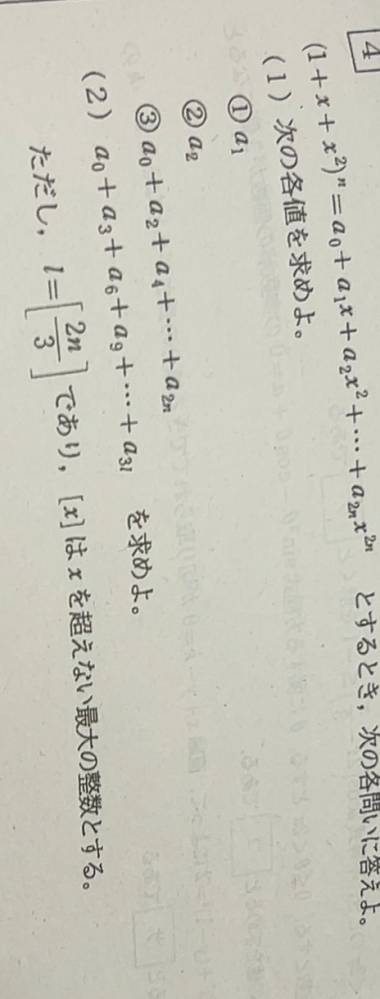 4
(1+x+x²)ⁿ=a₀+a₁x+a₂x²+⋯+a₂ₙx²ⁿ とするとき，次の各問いに答えよ。
(1) 次の各値を求めよ。
① a₁
② a₂
③ a₀+a₂+a₄+⋯+a₂ₙ
(2) a₀+a₃+a₆+a₉+⋯+a₃ₗ を求めよ。
ただし， l=[2n/3] であり，[x]はxを超えない最大の整数とする。